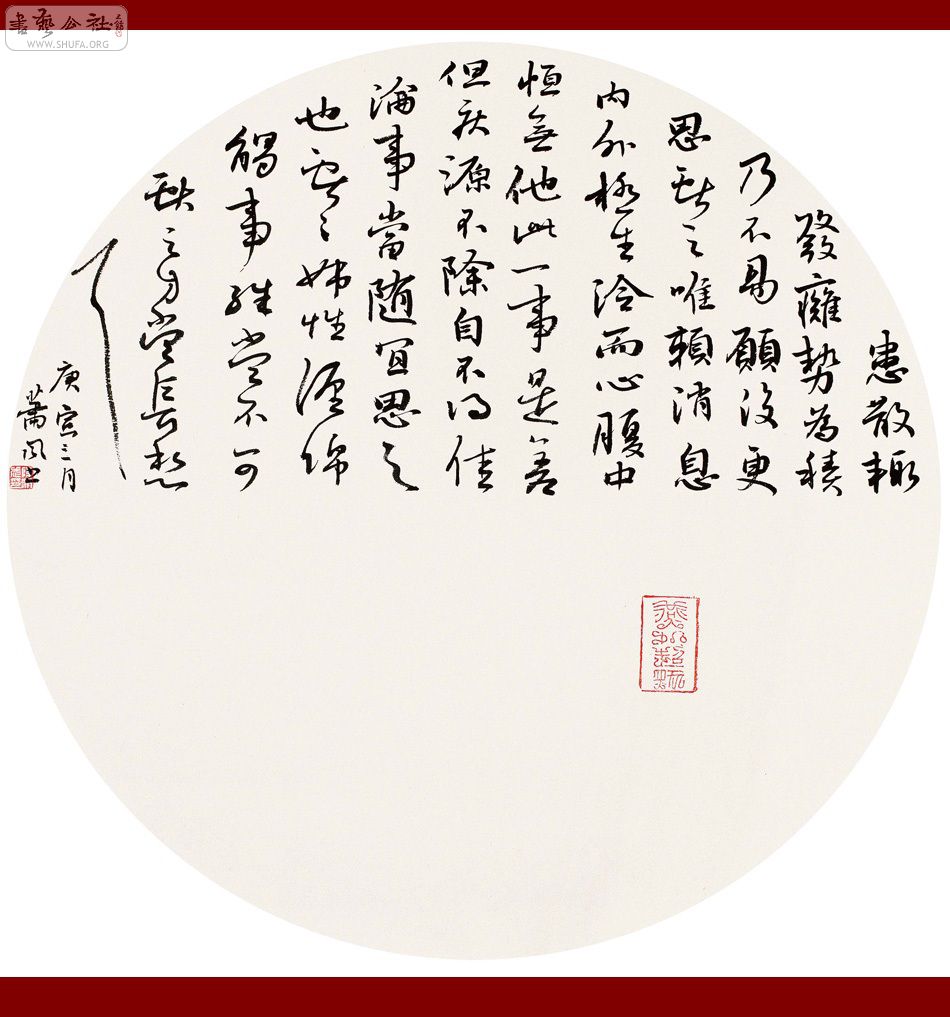 書藝公社
WWW.SHUFA.ORG
患散輒
發癰勢為積
乃不易願復更
思獻之唯賴消息
内外極生冷而心腹中
恒無他此一事是差
但疾源不除自不得佳
論事當隨宜思之
也獻之姊性纏綿
觸事殊當不可
獻之方當長愁
耳
庚寅三月
蕭風書